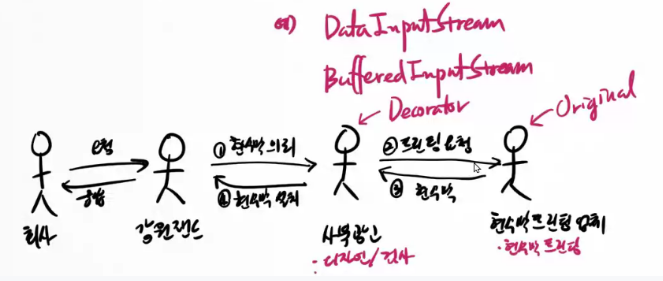 예) DataInputStream
BufferedInputStream
Decorator
Original
요청
응답
① 현수막 의뢰
④ 현수막 설치
② 프린팅 요청
③ 현수막
회사
강원랜드
사북광고
: 디자인/검사
현수막프린팅 업체
· 현수막 프린팅